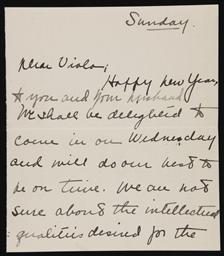 Sunday.
Dear Viola;
Happy New Year,
to you and your husband
We shall be delighted to
come in on Wednesday
and will do our best to
be on time. We are not
sure about the intellectual
qualities desired for the